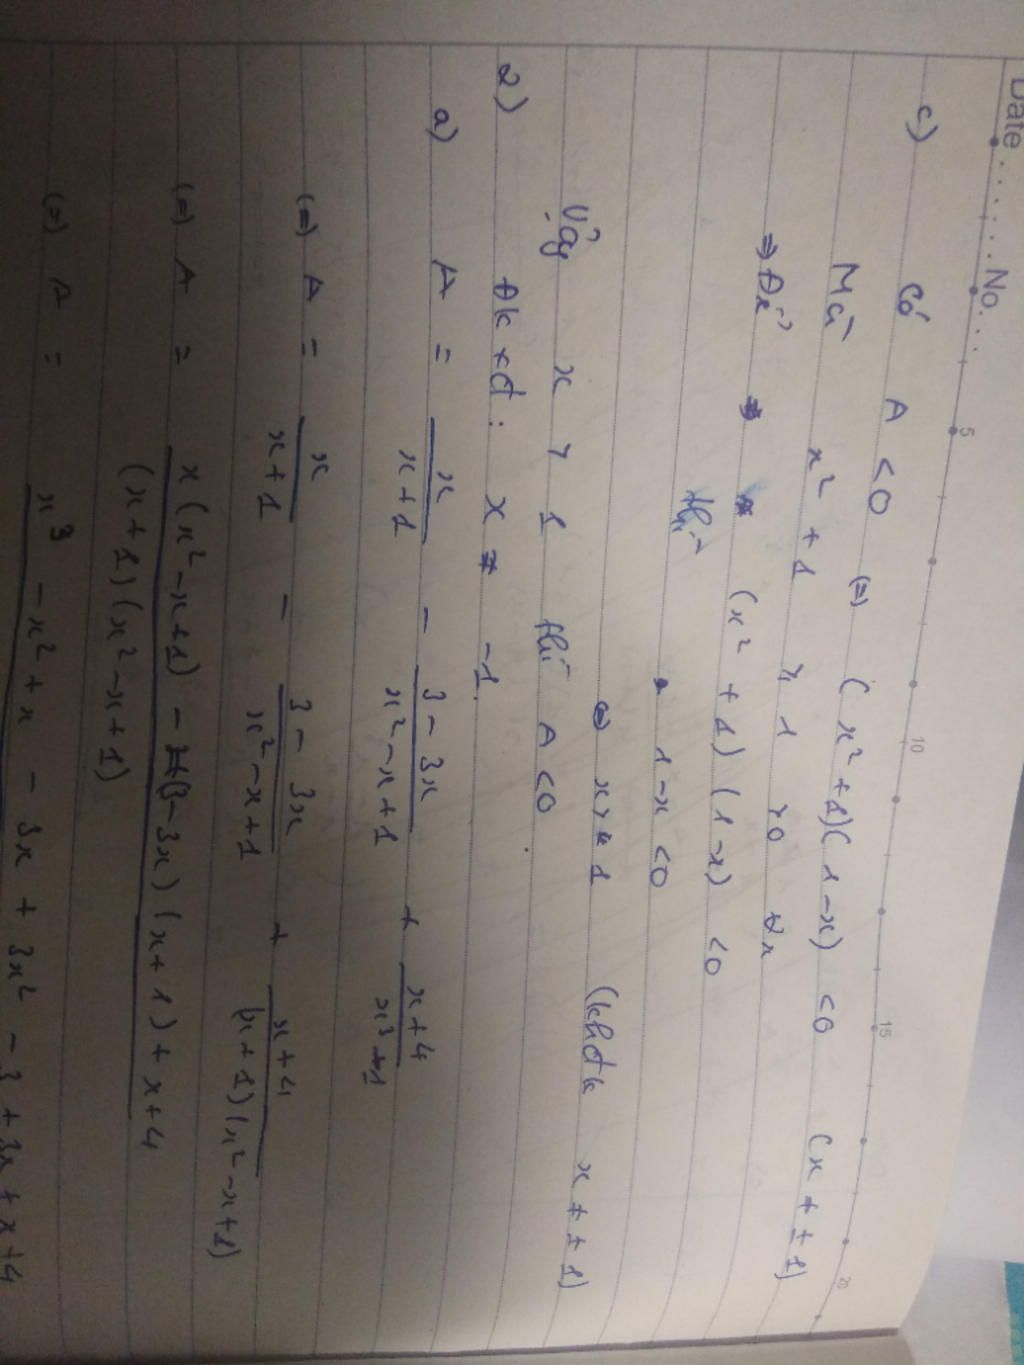 Date ....... No. ...
5 10 15 20
c) Có A < 0 (=) (x² + 1)(1 - x) < 0 (x ≠ ± 1)
Mà x² + 1 ≥ 1 > 0 ∀x
=> Để (x² + 1)(1 - x) < 0
thì 1 - x < 0
(=) x > 1 (khđk x ≠ ± 1)
Vậy x > 1 thì A < 0.
2) Đkxđ: x ≠ -1.
a) A = x/(x + 1) - (3 - 3x)/(x² - x + 1) + (x + 4)/(x³ + 1)
(=) A = x/(x + 1) - (3 - 3x)/(x² - x + 1) + (x + 4)/((x + 1)(x² - x + 1))
(=) A = (x(x² - x + 1) - (3 - 3x)(x + 1) + x + 4)/((x + 1)(x² - x + 1))
(=) A = x³ - x² + x - 3x + 3x² - 3 + 3x + x + 4